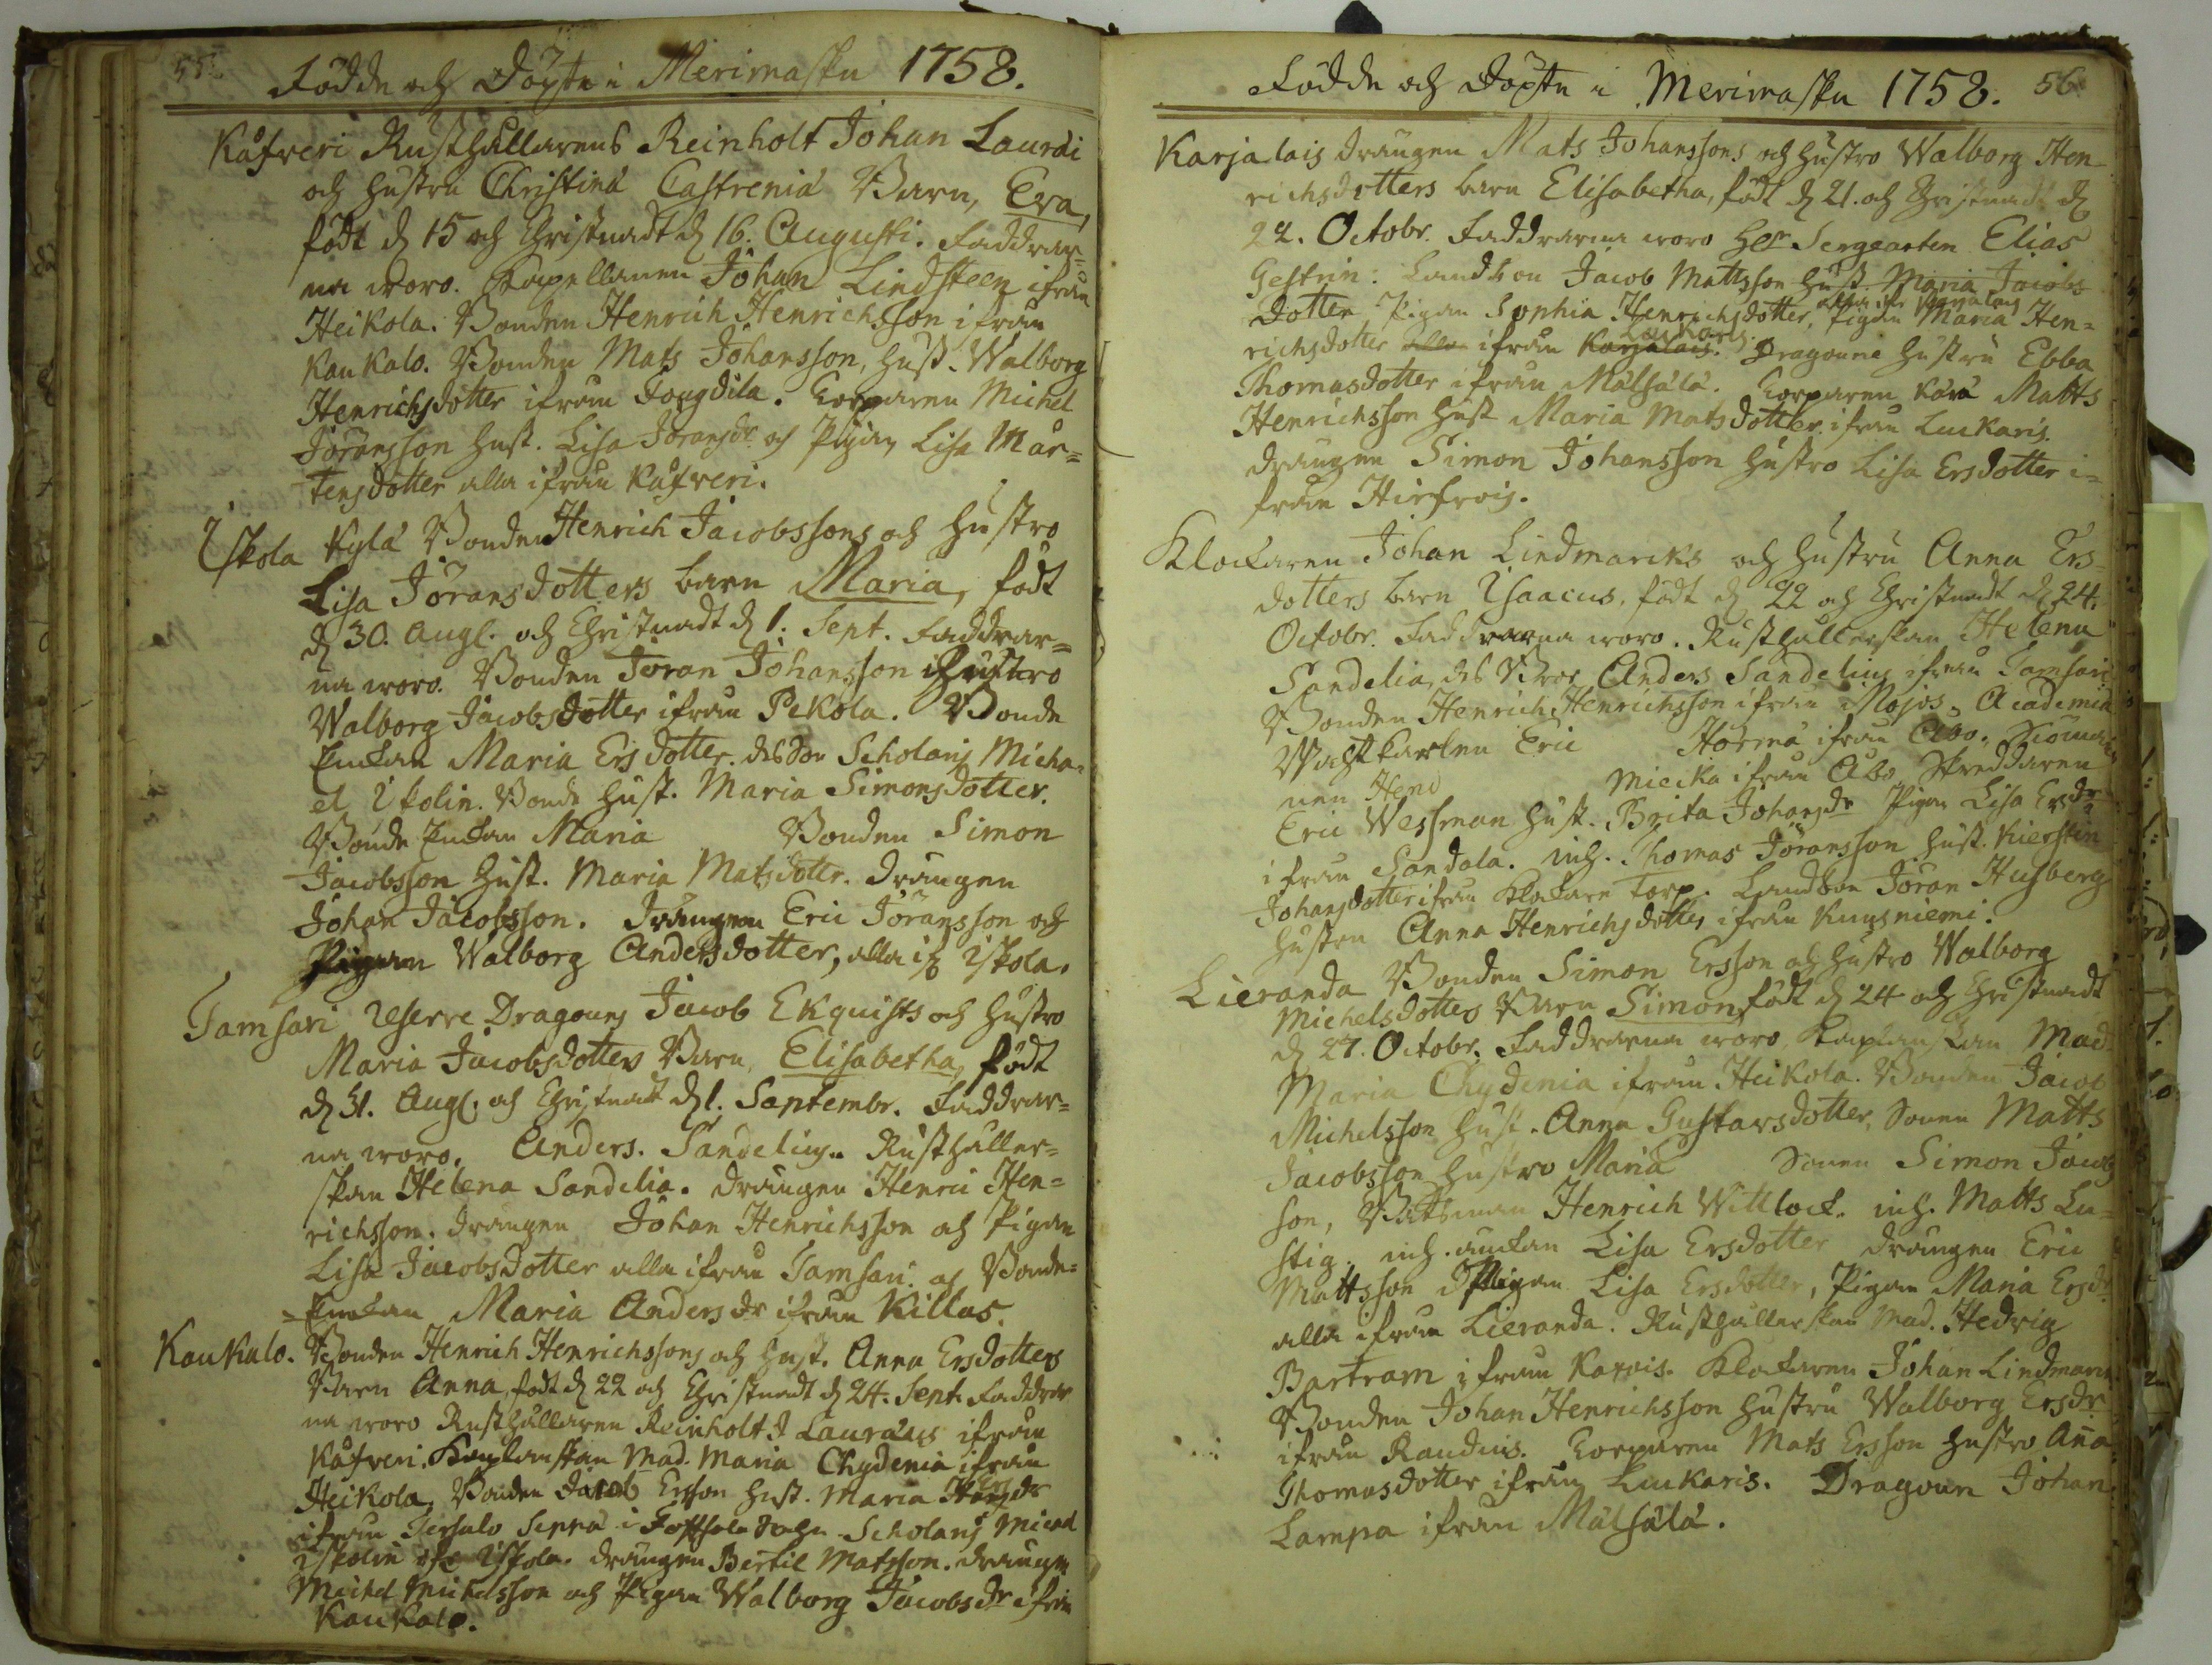 55.
Födde och Döpte i Merimasku 1758.
Kåfveri Rusthållarens Reinholt Johan Laurdi
och hustru Christina Castrenia Barn, Eva,
födt d 15 och Christnadt d 16. Augusti. Faddrar=
na woro. Kapellanen Johan Lindsteen ifrån
Heikola. Bonden Henrich Henrichsson ifrån
Kaukalo. Bonden Mats Johansson, Hust. Walborg
Henrichsdotter ifrån Tougdila. Corparen Michel
Joransson Hust. Lisa Joransdr och Pigan Lisa Mår=
tensdotter alla ifrån Kåfveri.
Iskola Kylä Bonden Henrich Jacobssons och hustro
Lisa Joransdotters barn Maria, födt
d 30. Augl. och Christnadt d 1. Sept. Faddrar=
na woro. Bonden Joran Johansson hustro
Walborg Jacobsdotter ifrån Pekola. Bonde
Enckan Maria Ersdotter. des Son Scholaris Micha=
el Iskolin. Bonde Hust. Maria Simonsdotter.
Bonde Enckan Maria Bonden Simon
Jacobsson Hust. Maria Matsdotter. Drängen
Johan Jacobsson. Drängen Eric Joransson och
Pigan Walborg Andersdotter, alla if Iskola.
Tamsari Reserve Dragouns Jacob Ekquists och hustro
Maria Jacobsdotters Barn, Elisabetha, födt
d 31. Augl. och Christnadt d 1. Septembr. Faddrar=
na woro. Anders. Sandelius. Rusthåller=
skan Helena Sandelia. Drängen Henric Hen=
richsson. Drängen Johan Henrichsson och Pigan
Lisa Jacobsdotter alla ifrån Tamsari. och Bonde=
Enckan Maria Anders dr ifrån Killas.
Kaukalo. Bonden Henrich Henrichssons och Hust. Anna Ersdotters
Barn Anna, födt d 22 och Christnadt d 24. Sept. Faddrar
na woro Rusthållaren Reinholt J Lauraeus ifrån
Kåfveri. Kaplanskan Mad. Maria Chydenia ifrån
Heikola. Bonden Jacob Ersson Hust. Maria Ersdr
ifrån Jersalo Scholaris Micael
Iskolin if Iskola. Drängen Bertil Matsson. Drängen
Michel Michelsson och Pigan Walborg Jacobsdr ifrån
Kaukalo.
56.
Födde och Döpte i Merimasku 1758.
Karjalais Drängen Mats Johanssons och hustro Walborg Hen-
richsdotters barn Elisabetha, födt d 21. och Christnadt d
22. Octobr. Faddrarna woro Herr Sergeanten Elias
Gestrin: Landbon Jacob Mattsson Hust. Maria Jacobs
dotter Pigan Sophia Henrichsdotter, Pigan Maria Hen=
alla ifr Karjalais
richsdotter ifrån Luckaris. Dragoune hustru Ebba
Thomasdotter ifrån Målsälä. Corparen Matts
Henrichsson Hust Maria Matsdotter ifrån Luckaris.
Drängen Simon Johansson hustro Lisa Ersdotter i=
från Hirfvois.
Klockaren Johan Lindmarcks och hustru Anna Ers=
dotters barn Isaacus. födt d 22 och Christnadt d 24.
Octobr. Faddrarna woro. Rusthållerskan Helena
Sandelia, des Bror Anders Sandelius ifrån Tamsari
Bonden Henrich Henrichsson ifrån Mojos. Academiæ
Wachtkarlen Eric Hörmä ifrån Åbo.
nen Hend Miecka ifrån Åbo Skreddaren
Eric Wessman Hust. Brita Johansdr Pigan Lisa Ersdr
ifrån Sandala. inh. Thomas Joransson Hust. Kierstin
Johansdotter ifrån Klockare Torp. Landbon Joran Husberg
hustru Anna Henrichsdotter ifrån Kungsniemi.
Lieranda Bonden Simon Ersson och hustro Walborg
Michelsdotters Barn Simon födt d 24 och Christnadt
d 27. Octobr. Faddrarna woro Kaplanskan Mad.
Maria Chydenia ifrån Heikola. Bonden Jacob
Michelsson Hust. Anna Gustavsdotter, Sonen Matts
Jacobsson hustro Maria Sonen Simon Jacobs
son, Båtsman Henrich Wittlock. inh. Matts Lu=
stig. inh. änckan Lisa Ersdotter Drängen Eric
Mattsson Pigan Lisa Ersdotter, Pigan Maria Ersdr
alla ifrån Lieranda. Rusthållerskan Mad. Hedvig
Bartram ifrån Karvis. Klockaren Johan Lindmarck
Bonden Johan Henrichsson hustru Walborg Ersdr
ifrån Raudius. Corparen Mats Ersson hustro Anna
Thomasdotter ifrån Luckaris. Dragoun Johan
Lampa ifrån Målsälä.